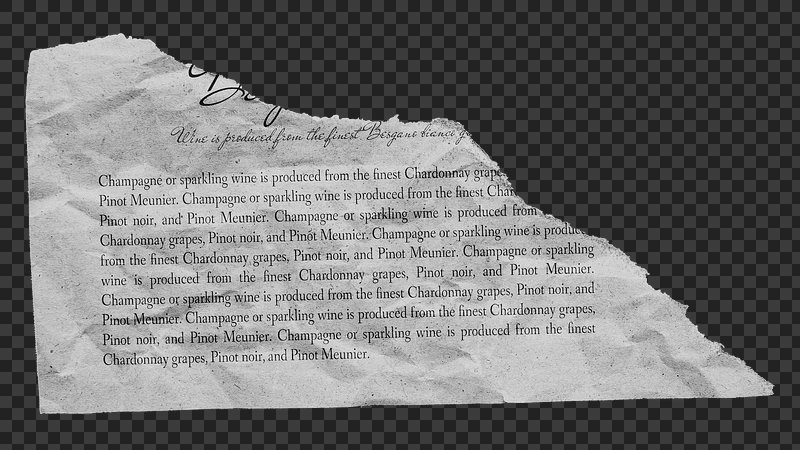 Wine is produced from the finest Besgano bianco
Champagne or sparkling wine is produced from the finest Chardonnay grape
Pinot Meunier. Champagne or sparkling wine is produced from the finest Char
Pinot noir, and Pinot Meunier. Champagne or sparkling wine is produced from
Chardonnay grapes, Pinot noir, and Pinot Meunier. Champagne or sparkling wine is produce
from the finest Chardonnay grapes, Pinot noir, and Pinot Meunier. Champagne or sparkling
wine is produced from the finest Chardonnay grapes, Pinot noir, and Pinot Meunier.
Champagne or sparkling wine is produced from the finest Chardonnay grapes, Pinot noir, and
Pinot Meunier. Champagne or sparkling wine is produced from the finest Chardonnay grapes,
Pinot noir, and Pinot Meunier. Champagne or sparkling wine is produced from the finest
Chardonnay grapes, Pinot noir, and Pinot Meunier.